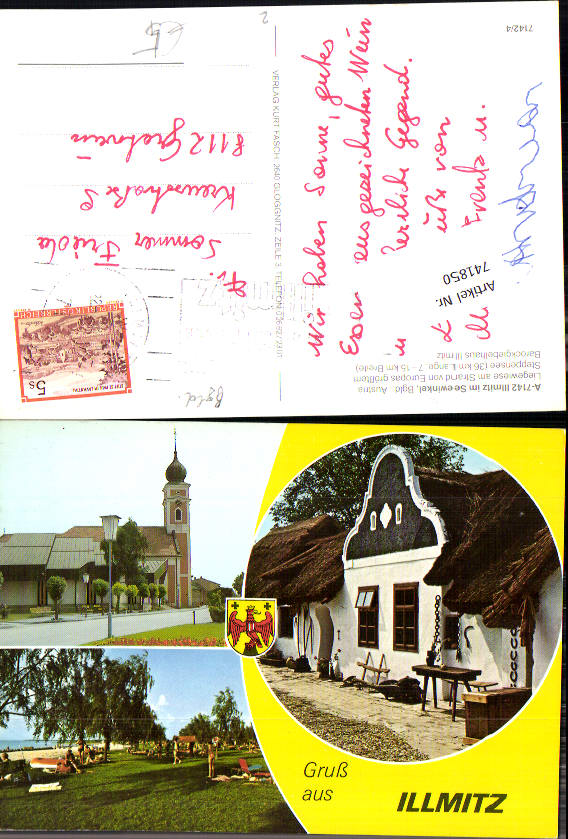 7142/4
Wir haben Sonne, gutes
Essen ausgezeichneten Wein
u herrliche Gegend.
Artikel Nr.
741850
VERLAG KURT FASCH, 2640 GLOGGNITZ, ZEILE 3, TELEFON
Fr.
Sommer Friola
Kreuzstraße
8112 Gratwein
REPUBLIK ÖSTERREICH
5 S
Bgld.
A-7142 Illmitz im Seewinkel, Bgld., Austria
Liegewiese am Strand von Europas größtem
Steppensee (36 km Länge, 7–15 km Breite)
Barockgiebelhaus Illmitz
Gruß
aus
ILLMITZ